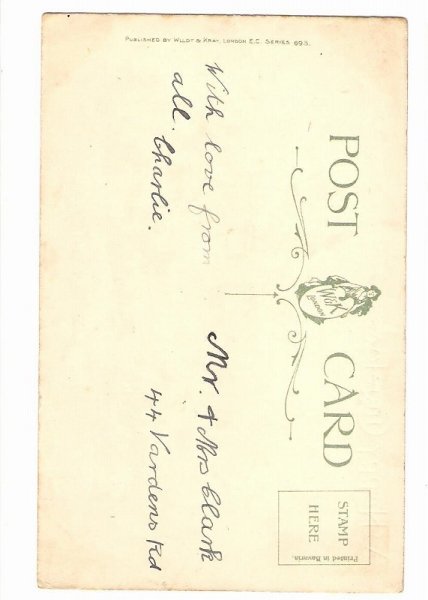 PUBLISHED BY WILDT & KRAY, LONDON E.C. SERIES 693.
POST CARD
W&K
LONDON
STAMP
HERE
Printed in Bavaria.
With love from
all.
Charlie.
Mr. & Mrs Clark
44 Vardens Rd